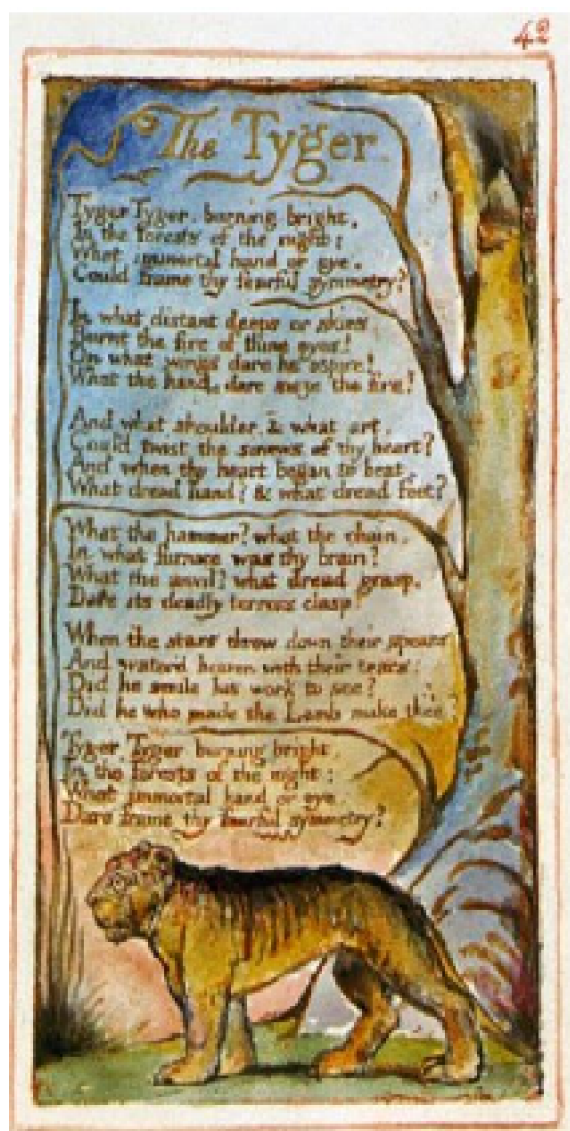 42
The Tyger
Tyger Tyger. burning bright,
In the forests of the night:
What immortal hand or eye.
Could frame thy fearful symmetry?
In what distant deeps or skies
Burnt the fire of thine eyes?
On what wings dare he aspire?
What the hand, dare seize the fire?
And what shoulder, & what art,
Could twist the sinews of thy heart?
And when thy heart began to beat,
What dread hand? & what dread feet?
What the hammer? what the chain,
In what furnace was thy brain?
What the anvil? what dread grasp,
Dare its deadly terrors clasp?
When the stars threw down their spears
And water'd heaven with their tears:
Did he smile his work to see?
Did he who made the Lamb make thee?
Tyger Tyger burning bright,
In the forests of the night:
What immortal hand or eye,
Dare frame thy fearful symmetry?